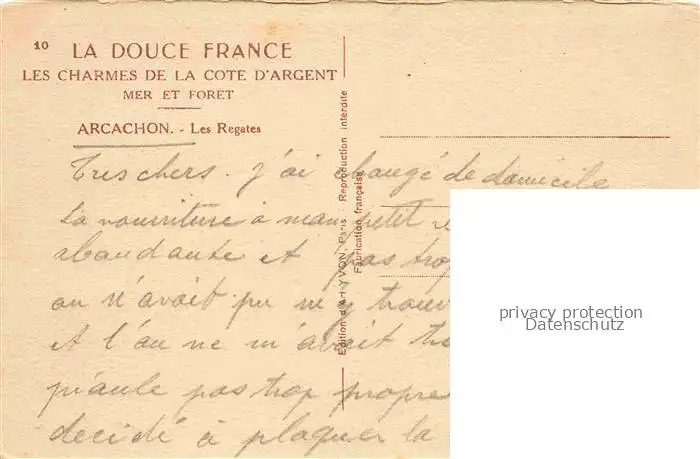 10 LA DOUCE FRANCE
LES CHARMES DE LA COTE D'ARGENT
MER ET FORET
ARCACHON. - Les Regates
Edition d'Art YVON, Paris. Reproduction interdite
Fabrication française
Tres chers. j'ai changé de domicile
La nourriture à mon petit
abandante et pas trop
on n'avait pu m'y trouv
et l'on ne m'avait
piaule pas trop propre
decidé à plaquer la
privacy protection
Datenschutz